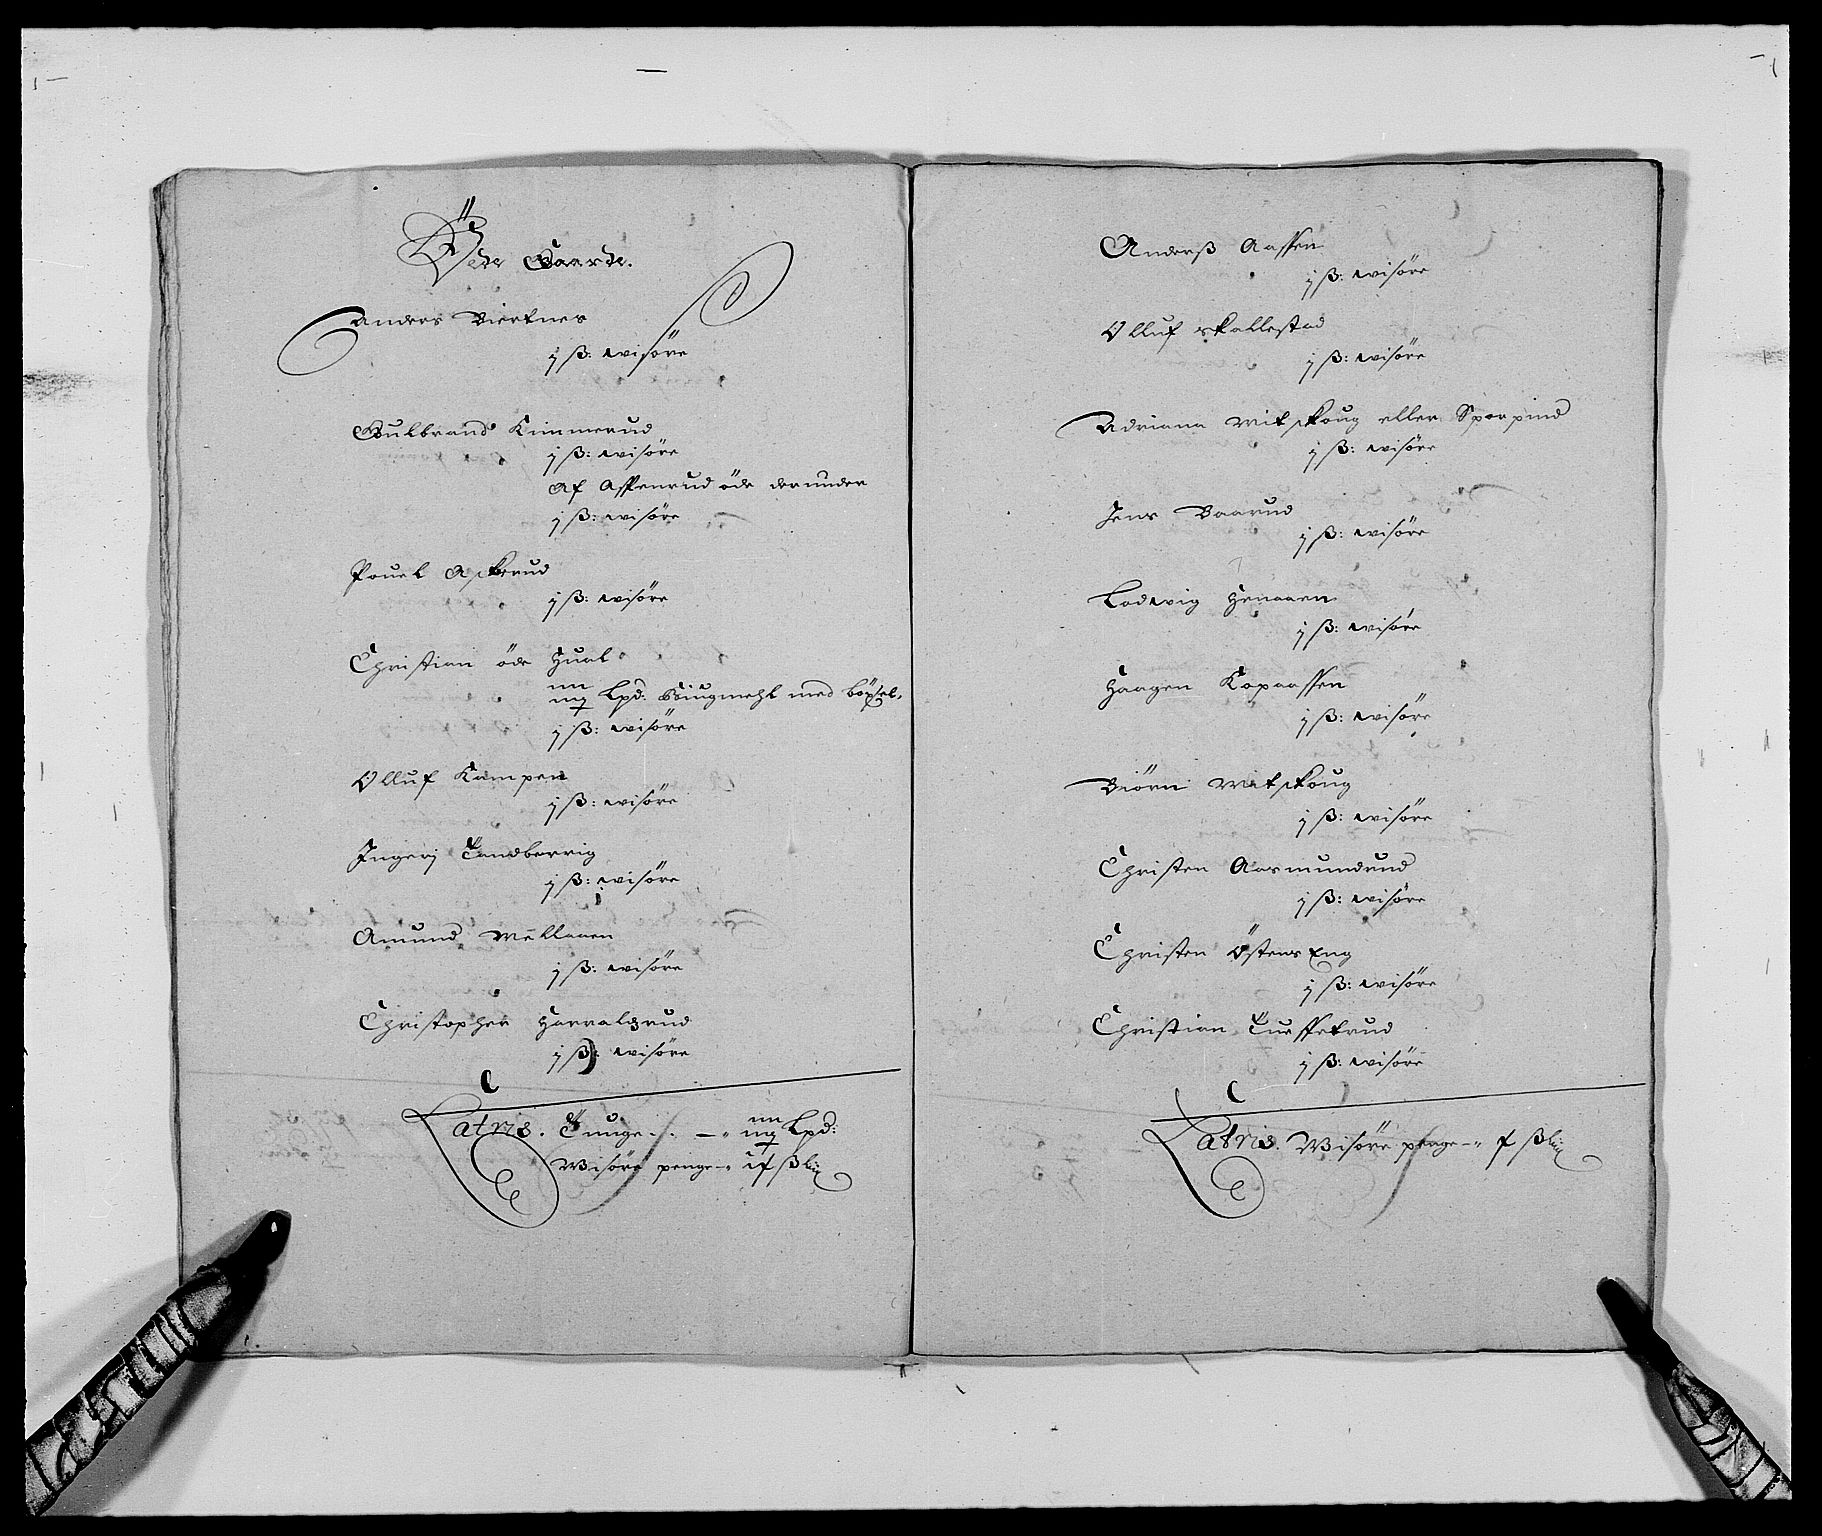 Öde Gaarde.
Anders Biertnes
j ß: wisöre
Gulbrand Kimmerud
j ß: wisöre
Af Aspenrud öde derunder
j ß: wisöre
Pouel Askerud
j ß: wisöre
Christian öde Hual
Lpd: Biugmehl med böxel,
j ß: wisöre
Olluf Kampen
j ß: wisöre
Ingerj Tandberrig
j ß: wisöre
Amund Mellaaen
j ß: wisöre
Christopher Harralsrud
j ß: wisöre
Latris. Tunge - Lpd:
Wisöre penge -
Anderß Aassen
j ß: wisöre
Olluf skallestad
j ß: wisöre
Adriana Mitskoug eller Sporpind
j ß: wisöre
Jens Baarud
j ß: wisöre
Lodwig Henaaen
j ß: wisöre
Haagen Kopaassen
j ß: wisöre
Biörn Mitskoug
j ß: wisöre
Christen Aasmundrud
j ß: wisöre
Christen Östens Eng
j ß: wisöre
Christian Tueffetrud
j ß: wisöre
Latris. Wisöre penge -